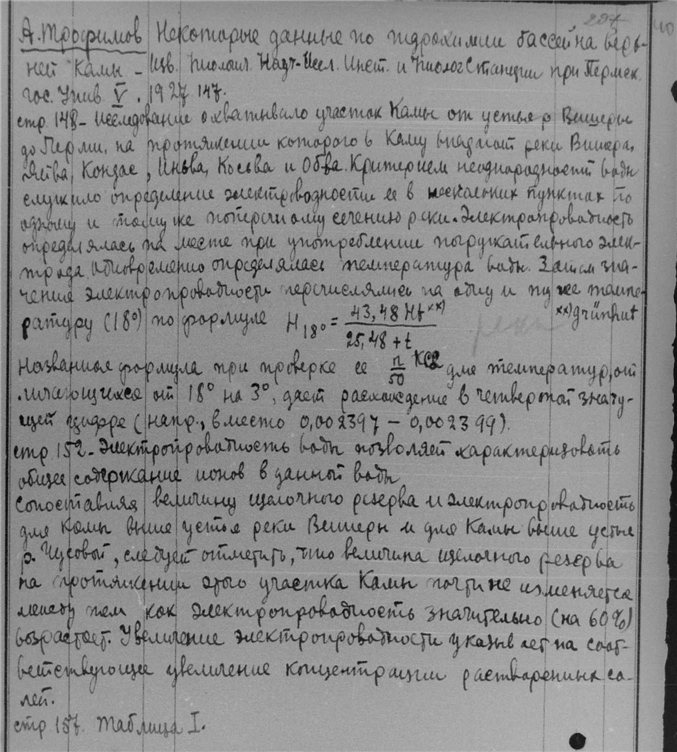 207
40
А. Трофимов Некоторые данные по гидрохимии бассейна верх-
ней Камы – Изв. Биолог. Науч-Иссл. Инст. и Биолог Станции при Пермск.
гос. Унив V. 1927 147.
стр. 148 – Исследование охватывало участок Камы от устья р Вишеры
до Перми, на протяжении которого в Каму впадают реки Вишера,
Яйва, Кондас, Иньва, Косьва и Обва. Критерием неоднородности воды
служило определение электроводности ее в нескольких пунктах по
одному и тому же поперечному сечению реки. Электропроводность
определялась на месте при употреблении погружательного элек-
трода. Одновременно определялась температура воды. Затем зна-
чение электропроводности перечислялись на одну и ту же темпе-
ратуру (18°) по формуле H18° = 43,48 Ht xx) / 25,48 + t xx) grünhut
реки
Названная формула при проверке ее n/50 KCl для температур, от-
личающихся от 18° на 3°, дает расхождение в четвертой значу-
щей цифре (напр., вместо 0,002397 – 0,002399).
стр 152 – Электропроводность воды позволяет характеризовать
общее содержание ионов в данной воде
Сопоставляя величину щелочного резерва и электропроводность
для Камы выше устья реки Вишеры и для Камы выше устья
р. Чусовой, следует отметить, что величина щелочного резерва
на протяжении этого участка Камы почти не изменяется
между тем как электропроводность значительно (на 60%)
возрастает. Увеличение электропроводности указывает на соот-
ветствующее увеличение концентрации растворенных со-
лей.
стр 157. Таблица I.